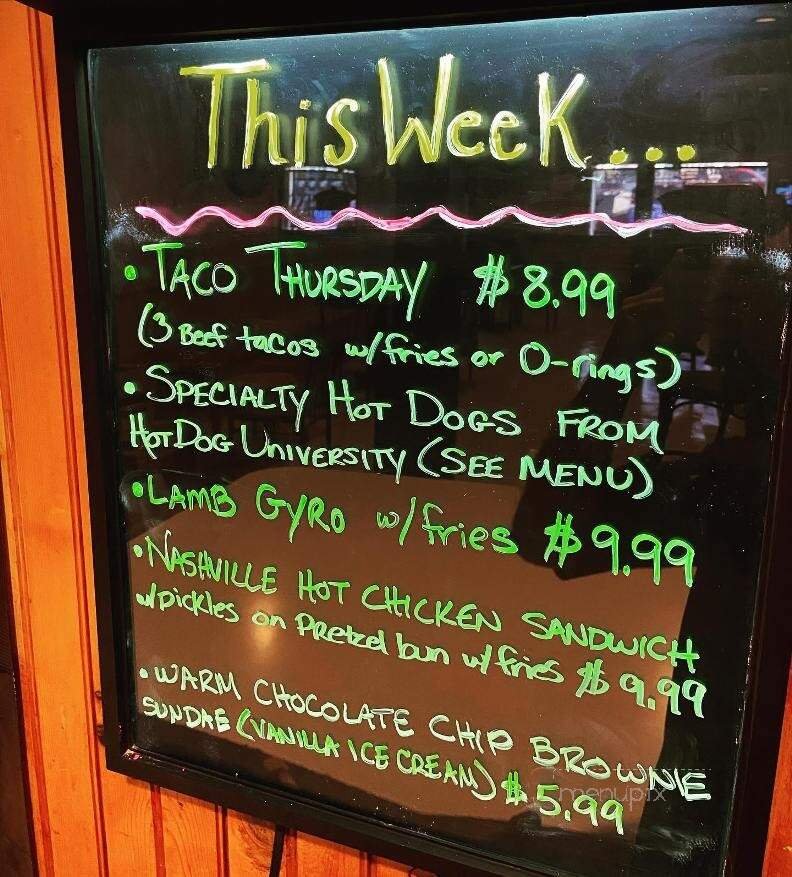 This Week...
• TACO THURSDAY $8.99
(3 Beef tacos w/fries or O-rings)
• SPECIALTY HOT DOGS FROM
HOT DOG UNIVERSITY (SEE MENU)
• LAMB GYRO w/fries $9.99
• NASHVILLE HOT CHICKEN SANDWICH
w/pickles on Pretzel bun w/fries $9.99
• WARM CHOCOLATE CHIP BROWNIE
SUNDAE (VANILLA ICE CREAM) $5.99
menupix